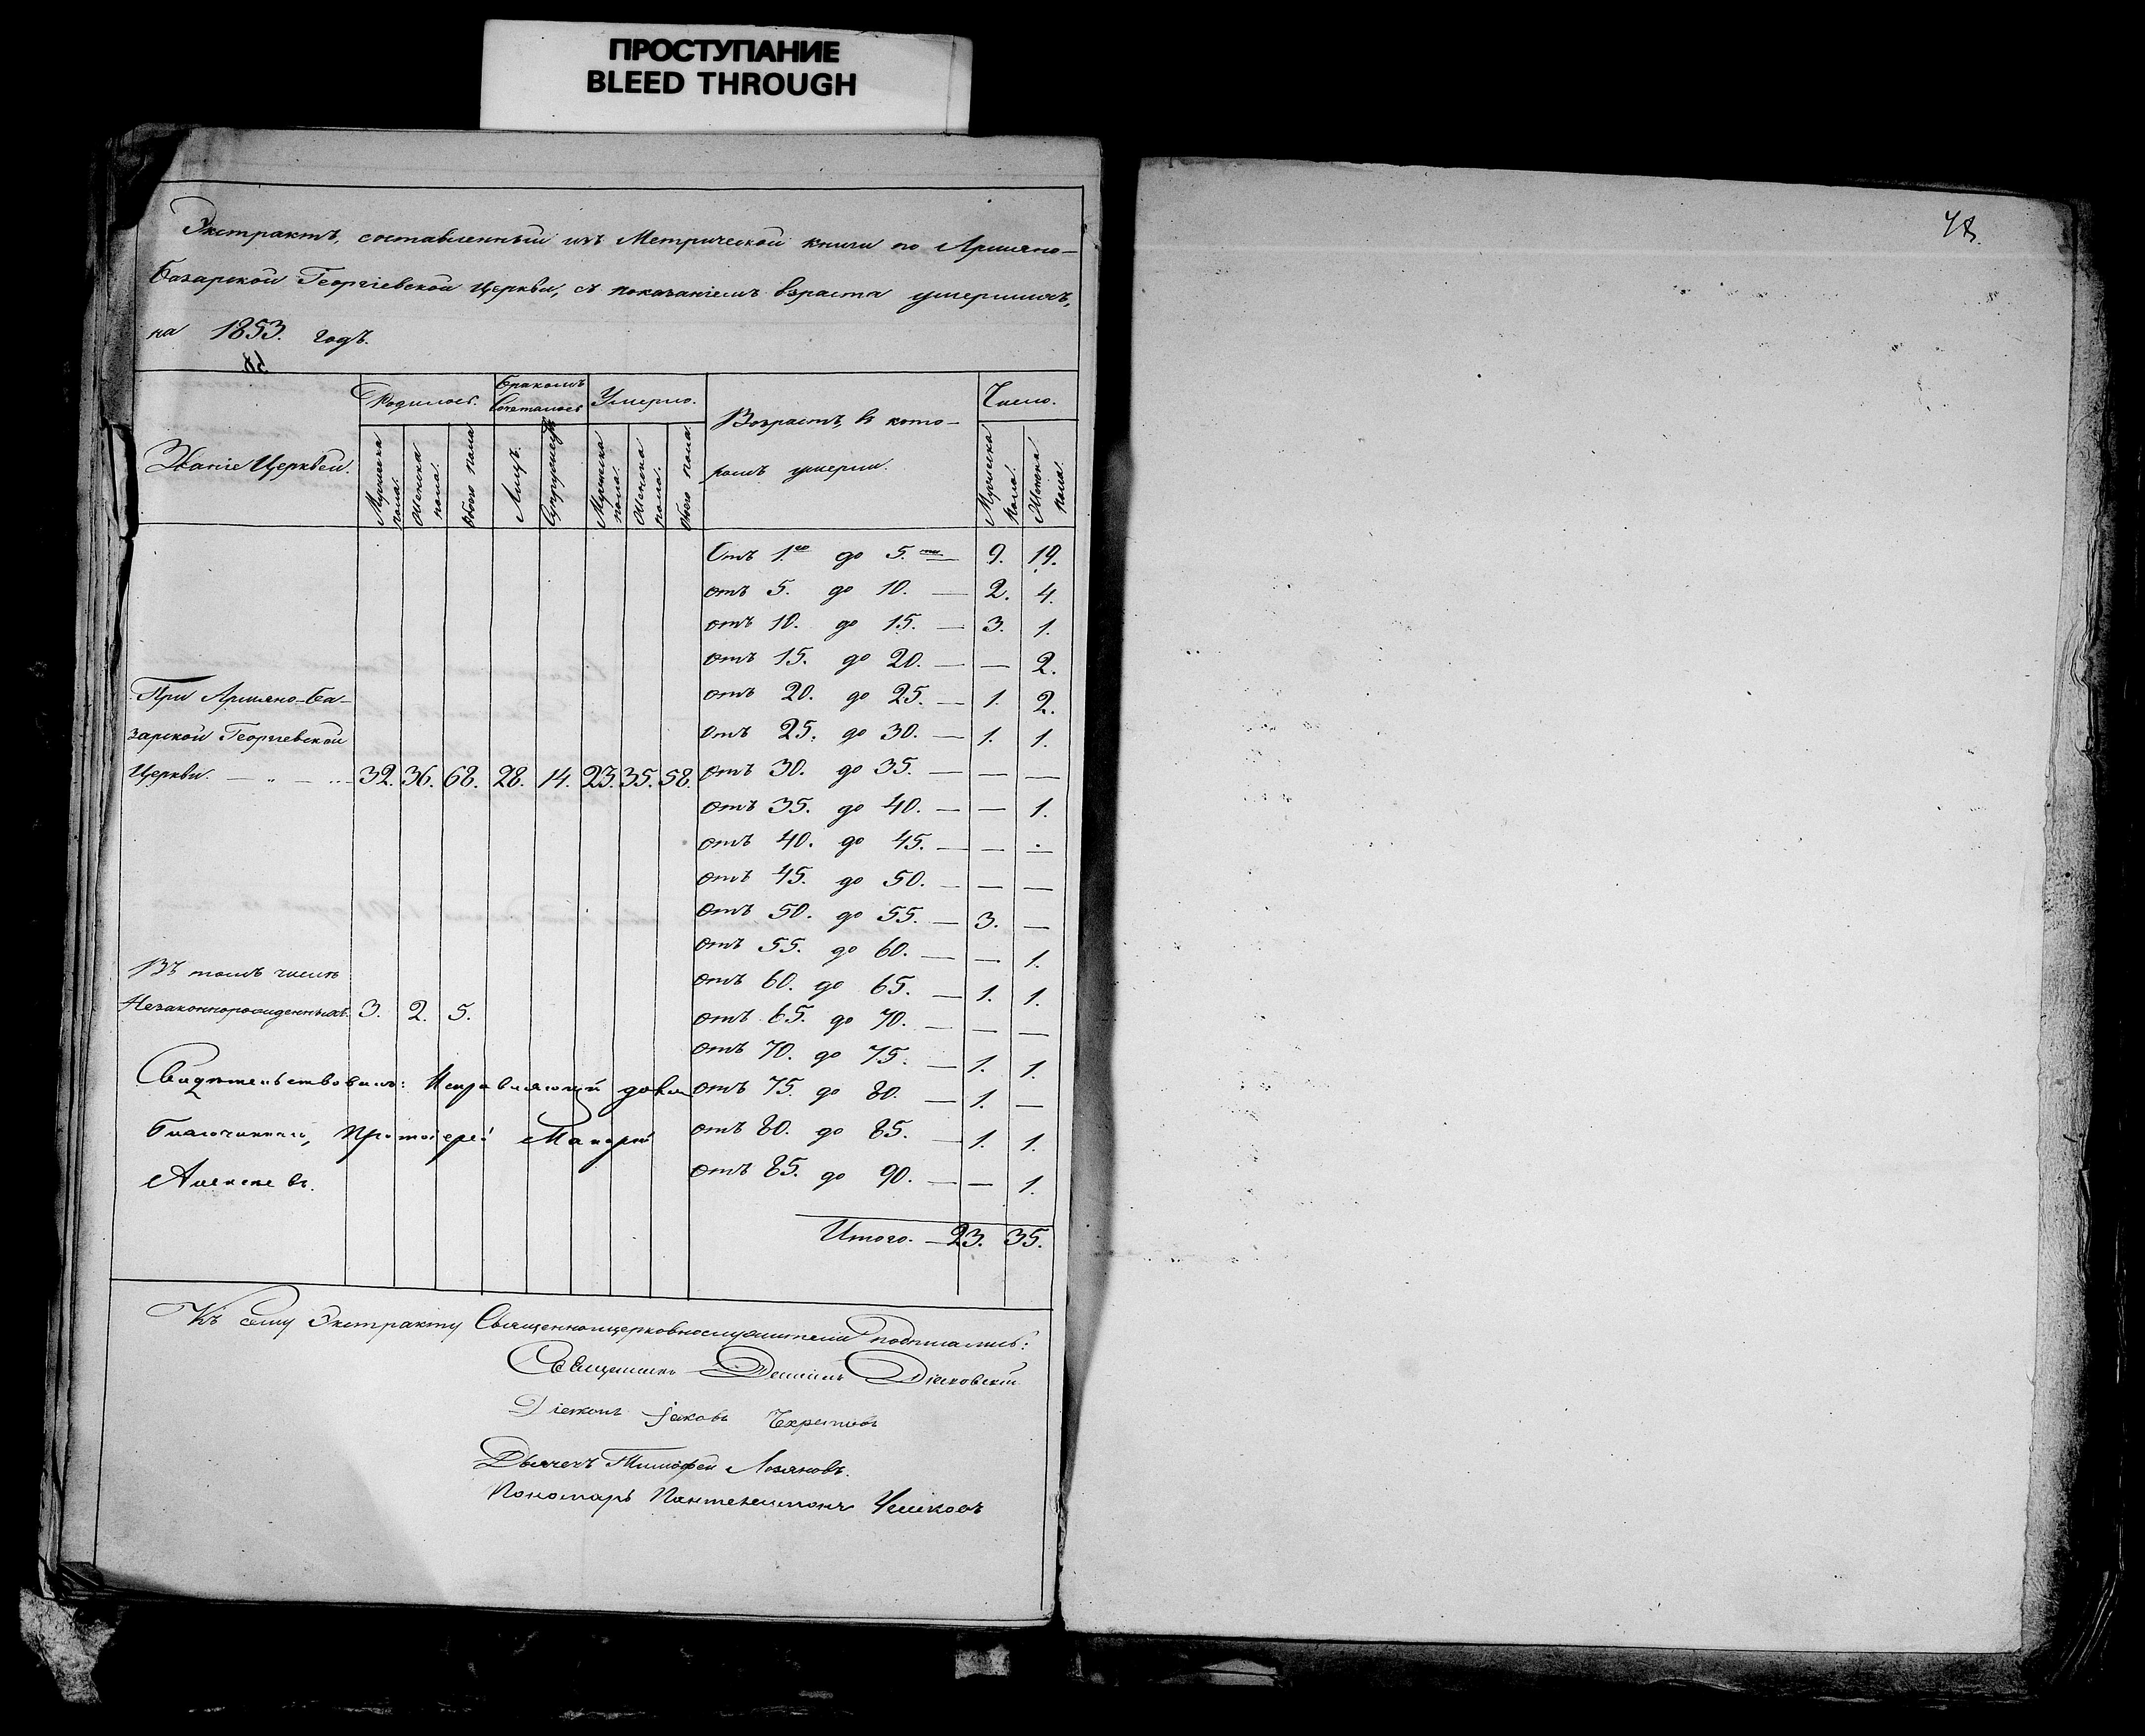 ПРОСТУПАНИЕ
BLEED THROUGH
48.
Экстрактъ, составленный изъ Метрической книги по Армяно-
базарской Георгіевской Церкви, съ показаніемъ взраста умершихъ,
на 1853. годъ.
58
Званіе Церквей.
Родилось.
Бракомъ
Сочеталось
Умерло.
Возрастъ, въ кото-
ромъ умерли.
Число.
Мужеска пола.
Женска пола.
Обоего пола
Лицъ.
Супружествъ
Мужеска пола.
Женска пола.
Обоего пола.
Мужеска пола.
Женска пола.
Отъ 1.го до 5.ти — 9. 19.
отъ 5. до 10. — 2. 4.
отъ 10. до 15. — 3. 1.
отъ 15. до 20. — — 2.
отъ 20. до 25. — 1. 2.
отъ 25. до 30. — 1. 1.
отъ 30. до 35. — — —
отъ 35. до 40. — — 1.
отъ 40. до 45. — — —
отъ 45. до 50. — — —
отъ 50. до 55. — 3. —
отъ 55. до 60. — — 1.
отъ 60. до 65. — 1. 1.
отъ 65. до 70. — — —
отъ 70. до 75. — 1. 1.
отъ 75. до 80. — 1. —
отъ 80. до 85. — 1. 1.
отъ 85. до 90. — — 1.
Итого. — 23. 35.
При Армяно-Ба-
зарской Георгіевской
Церкви. — „ — „ 32. 36. 68. 28. 14. 23. 35. 58.
Въ томъ числѣ
Незаконнорожденныхъ. 3. 2. 5.
Свидѣтельствовалъ: Исправляющій долж.
благочиннаго, Протоіерей Макарій
Алексѣевъ.
Къ сему Экстракту Священноцерковнослужители подписались:
Священникъ Даніилъ
Діаконъ Іаковъ
Дьячекъ Тимофей Лозановъ.
Пономарь Пантелеимонъ